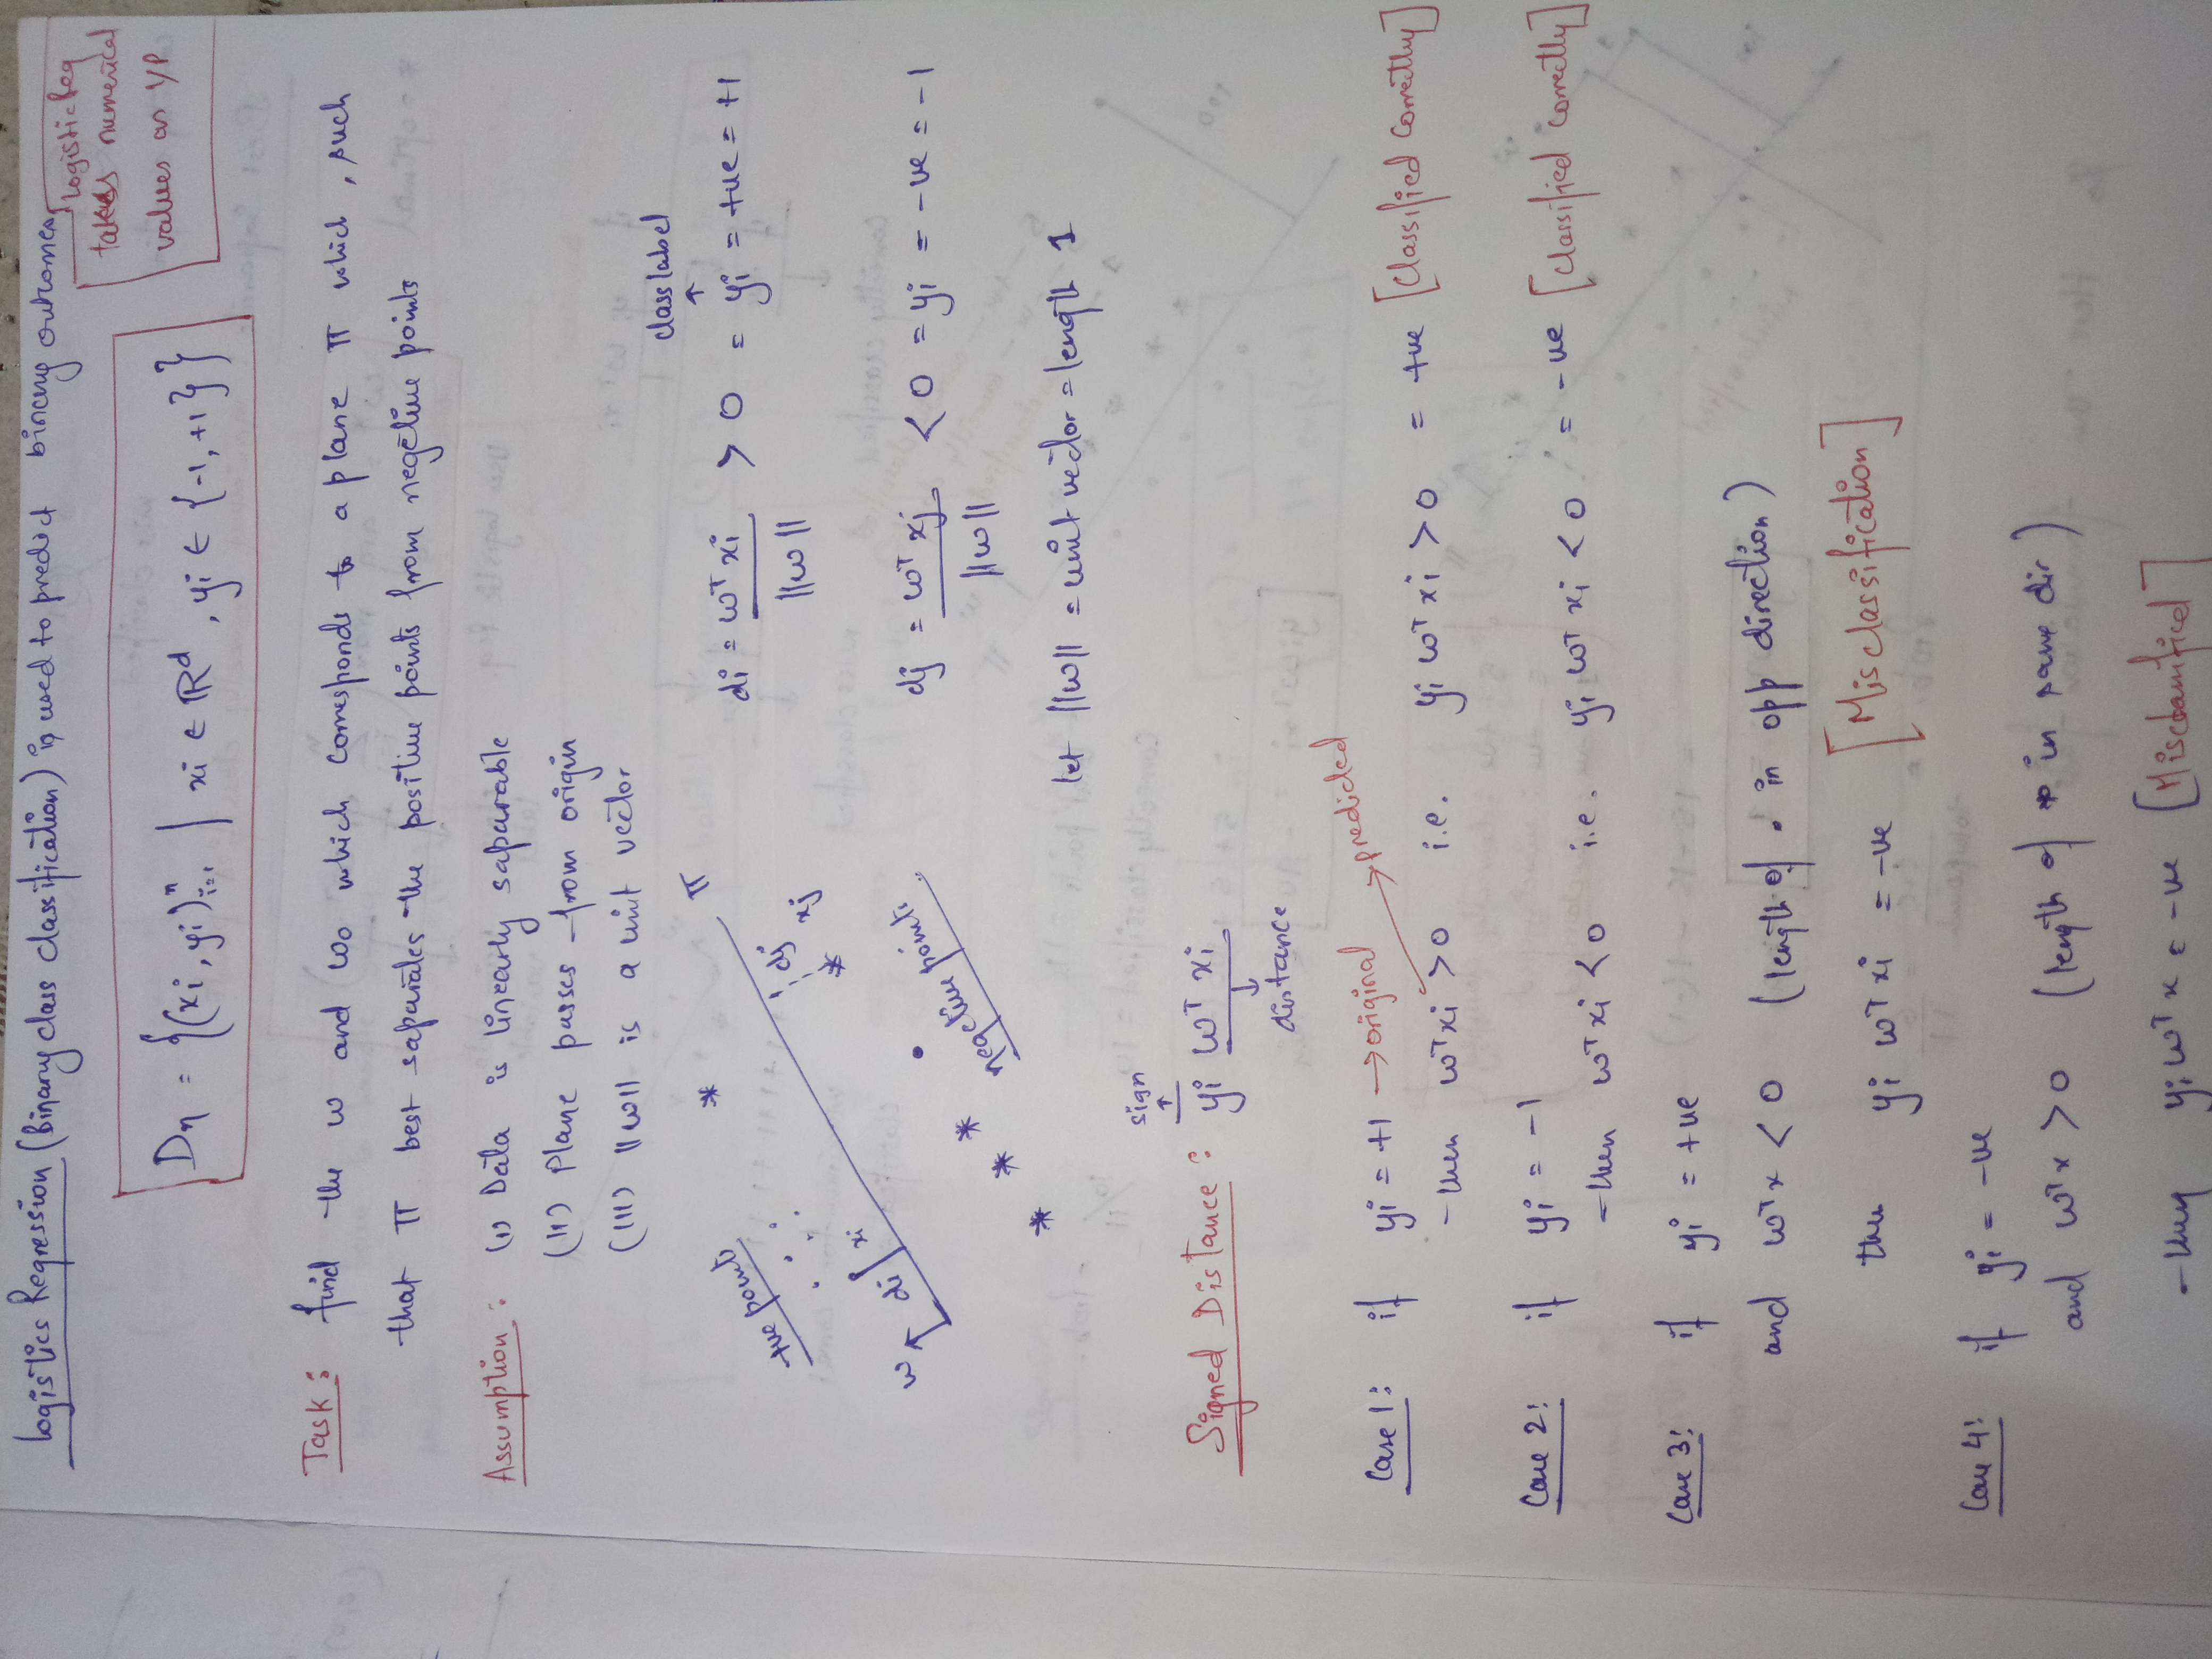 Logistics Regression (Binary class classification) is used to predict binary outcomes
Logistic Reg
takes numerical
values as I/P
Dn = {(xi, yi)ⁿi=1 | xi ∈ ℝᵈ, yi ∈ {-1, +1}}
Task: find the w and w₀ which corresponds to a plane π which, such
that π best saparates the positive points from negetive points
Assumption: (i) Data is linearly saparable
(ii) Plane passes from origin
(iii) ||w|| is a unit vector
+ve points
π
dj
xj
xi
di
w
negetive points
class label
di = wᵀxi / ||w|| > 0 = yi = +ve = +1
dj = wᵀxj / ||w|| < 0 = yi = -ve = -1
let ||w|| = unit vector = length 1
sign
Signed Distance: yi wᵀ xi
distance
Case 1: if yi = +1 → original → predicted
then wᵀxi > 0 i.e. yi wᵀxi > 0 = +ve [Classified Correctly]
Case 2: if yi = -1
then wᵀxi < 0 i.e. yi wᵀxi < 0 = -ve [Classified correctly]
Case 3: if yi = +ve
and wᵀx < 0 (length of • in opp direction)
then yi wᵀxi = -ve [Misclassification]
Case 4: if yi = -ve
and wᵀx > 0 (length of * in same dir)
then yi wᵀx = -ve [Misclassified]